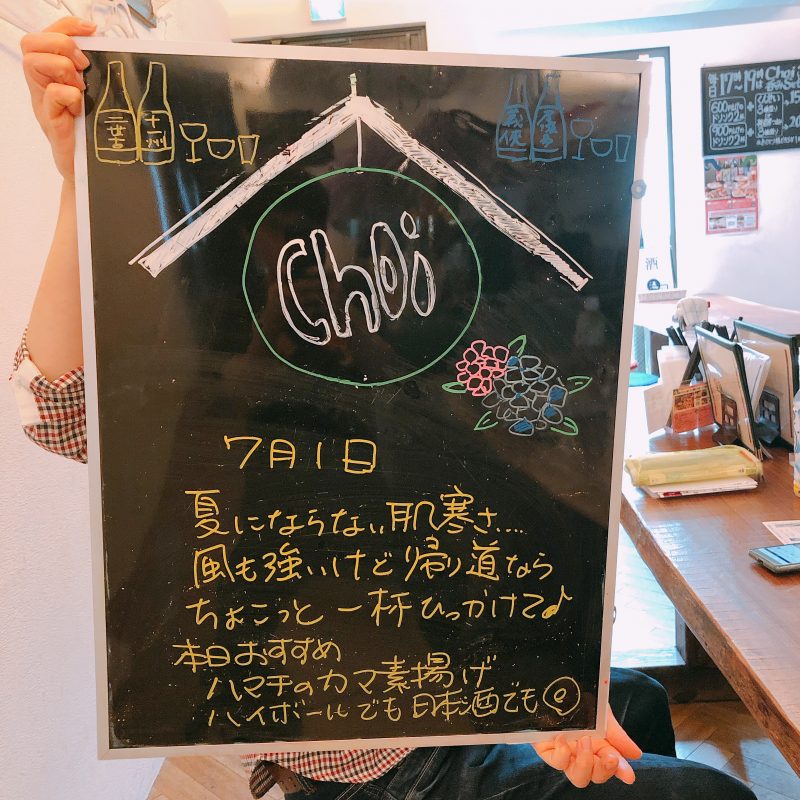 Choi
7月1日
夏にならない肌寒さ....
風も強いけど帰り道なら
ちょこっと一杯ひっかけて♪
本日おすすめ
ハマチのカマ素揚げ
ハイボールでも日本酒でも
二世古
十一州
毎日17時〜19時
Choi
600円
ドリンク2杯
900円
ドリンク2杯
酒